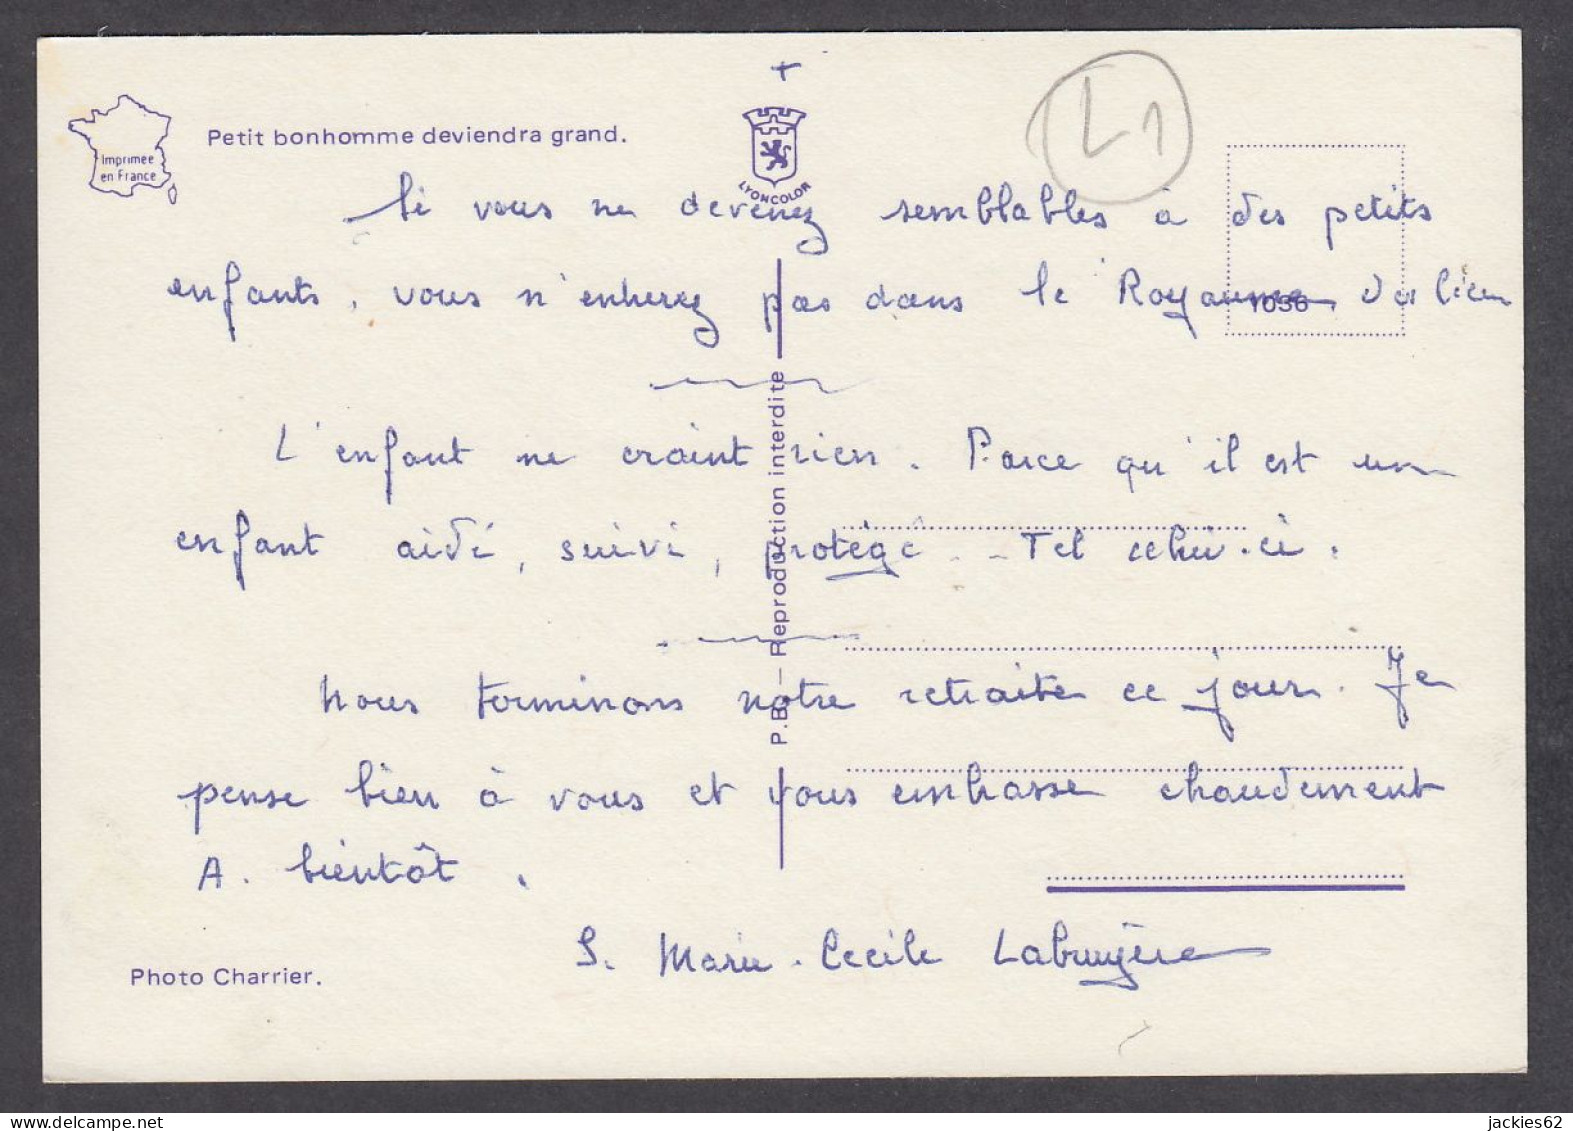 +
Imprimée
en France
Petit bonhomme deviendra grand.
LYONCOLOR
L1
Si vous ne devenez semblables à des petits
enfants, vous n'entrerez pas dans le Royaume des Cieux
1036
L'enfant ne craint rien. Parce qu'il est un
enfant aidé, suivi, protégé.. Tel celui-ci.
Nous terminons notre retraite ce jour. Je
pense bien à vous et vous embrasse chaudement
A. bientôt.
S. Marie-Cecile Labruyère
P.B. — Reproduction interdite
Photo Charrier.
jackies62